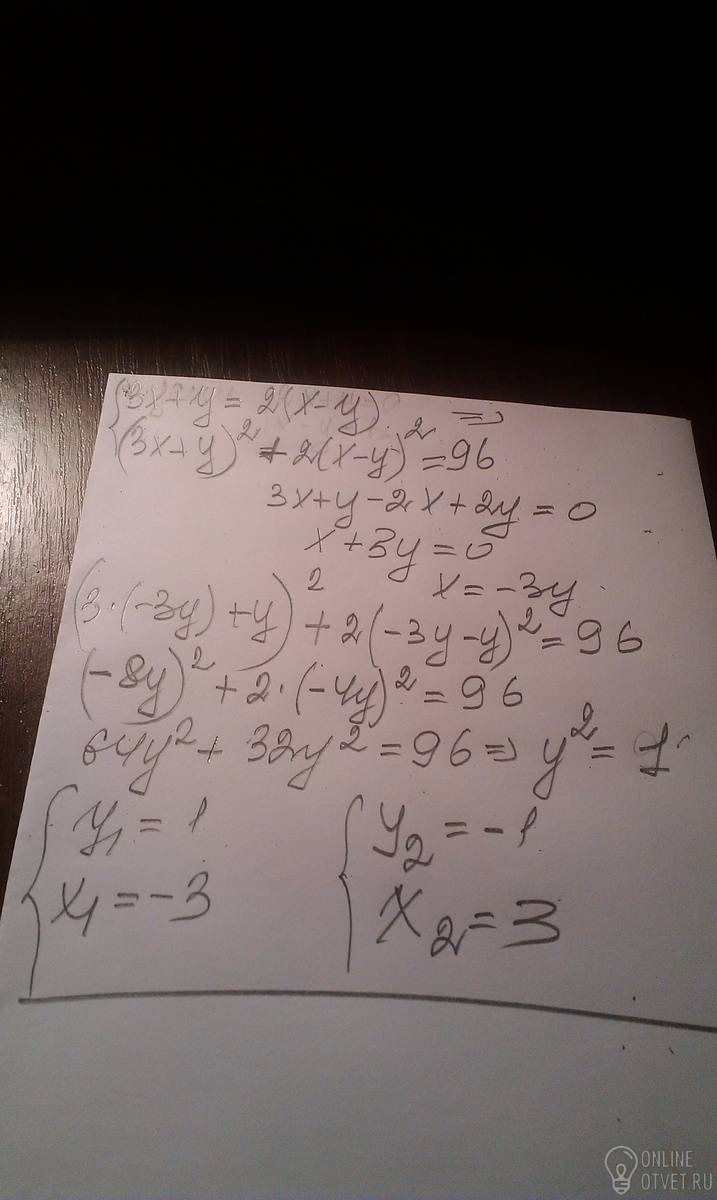 {3x+y = 2(x-y) =>
{(3x+y)² + 2(x-y)² = 96
3x+y-2x+2y = 0
x+3y = 0
x = -3y
(3·(-3y)+y)² + 2(-3y-y)² = 96
(-8y)² + 2·(-4y)² = 96
64y² + 32y² = 96 => y² = 1
{y₁ = 1 {y₂ = -1
{x₁ = -3 {x₂ = 3
ONLINE
OTVET.RU